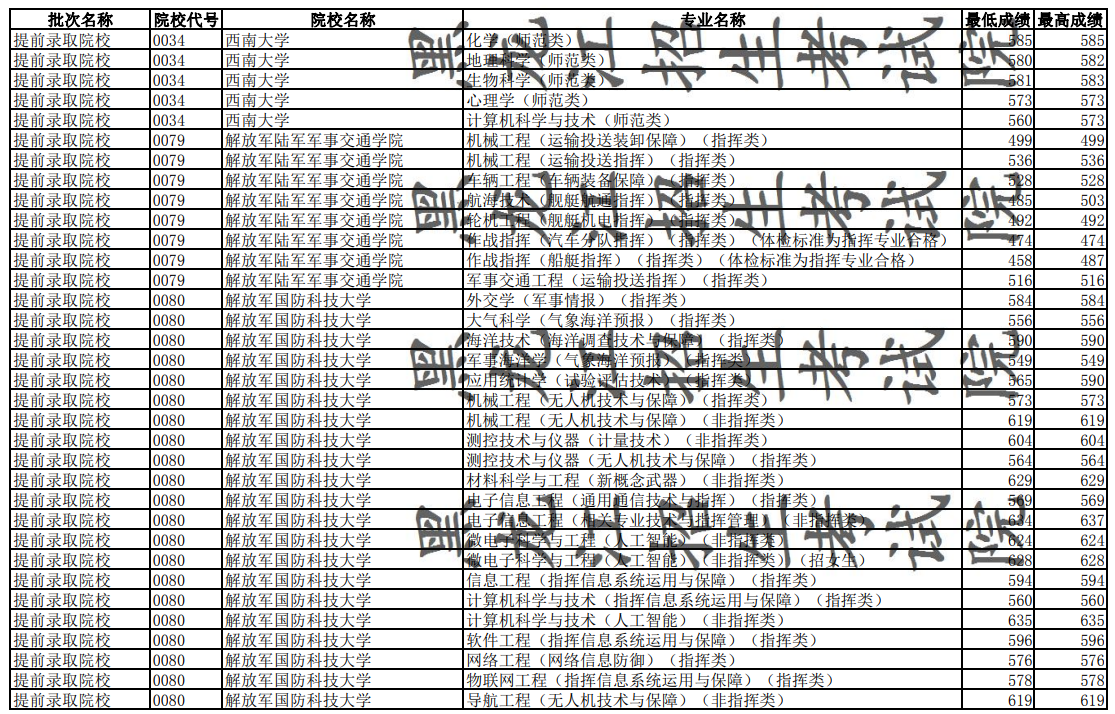 批次名称 院校代号 院校名称 专业名称 最低成绩 最高成绩
提前录取院校 0034 西南大学 化学（师范类） 585 585
提前录取院校 0034 西南大学 地理科学（师范类） 580 582
提前录取院校 0034 西南大学 生物科学（师范类） 581 583
提前录取院校 0034 西南大学 心理学（师范类） 573 573
提前录取院校 0034 西南大学 计算机科学与技术（师范类） 560 573
提前录取院校 0079 解放军陆军军事交通学院 机械工程（运输投送装卸保障）（指挥类） 499 499
提前录取院校 0079 解放军陆军军事交通学院 机械工程（运输投送指挥）（指挥类） 536 536
提前录取院校 0079 解放军陆军军事交通学院 车辆工程（车辆装备保障）（指挥类） 528 528
提前录取院校 0079 解放军陆军军事交通学院 航海技术（舰艇航通指挥）（指挥类） 485 503
提前录取院校 0079 解放军陆军军事交通学院 轮机工程（舰艇机电指挥）（指挥类） 492 492
提前录取院校 0079 解放军陆军军事交通学院 作战指挥（汽车分队指挥）（指挥类）（体检标准为指挥专业合格） 474 474
提前录取院校 0079 解放军陆军军事交通学院 作战指挥（船艇指挥）（指挥类）（体检标准为指挥专业合格） 458 487
提前录取院校 0079 解放军陆军军事交通学院 军事交通工程（运输投送指挥）（指挥类） 516 516
提前录取院校 0080 解放军国防科技大学 外交学（军事情报）（指挥类） 584 584
提前录取院校 0080 解放军国防科技大学 大气科学（气象海洋预报）（指挥类） 556 556
提前录取院校 0080 解放军国防科技大学 海洋技术（海洋调查技术与保障）（指挥类） 590 590
提前录取院校 0080 解放军国防科技大学 军事海洋学（气象海洋预报）（指挥类） 549 549
提前录取院校 0080 解放军国防科技大学 应用统计学（试验评估技术）（指挥类） 565 590
提前录取院校 0080 解放军国防科技大学 机械工程（无人机技术与保障）（指挥类） 573 573
提前录取院校 0080 解放军国防科技大学 机械工程（无人机技术与保障）（非指挥类） 619 619
提前录取院校 0080 解放军国防科技大学 测控技术与仪器（计量技术）（非指挥类） 604 604
提前录取院校 0080 解放军国防科技大学 测控技术与仪器（无人机技术与保障）（指挥类） 564 564
提前录取院校 0080 解放军国防科技大学 材料科学与工程（新概念武器）（非指挥类） 629 629
提前录取院校 0080 解放军国防科技大学 电子信息工程（通用通信技术与指挥）（指挥类） 569 569
提前录取院校 0080 解放军国防科技大学 电子信息工程（相关专业技术与指挥管理）（非指挥类） 634 637
提前录取院校 0080 解放军国防科技大学 微电子科学与工程（人工智能）（非指挥类） 624 624
提前录取院校 0080 解放军国防科技大学 微电子科学与工程（人工智能）（非指挥类）（招女生） 628 628
提前录取院校 0080 解放军国防科技大学 信息工程（指挥信息系统运用与保障）（指挥类） 594 594
提前录取院校 0080 解放军国防科技大学 计算机科学与技术（指挥信息系统运用与保障）（指挥类） 560 560
提前录取院校 0080 解放军国防科技大学 计算机科学与技术（人工智能）（非指挥类） 635 635
提前录取院校 0080 解放军国防科技大学 软件工程（指挥信息系统运用与保障）（指挥类） 596 596
提前录取院校 0080 解放军国防科技大学 网络工程（网络信息防御）（指挥类） 576 576
提前录取院校 0080 解放军国防科技大学 物联网工程（指挥信息系统运用与保障）（指挥类） 578 578
提前录取院校 0080 解放军国防科技大学 导航工程（无人机技术与保障）（非指挥类） 619 619
黑龙江招生考试院
黑龙江招生考试院
黑龙江招生考试院
黑龙江招生考试院